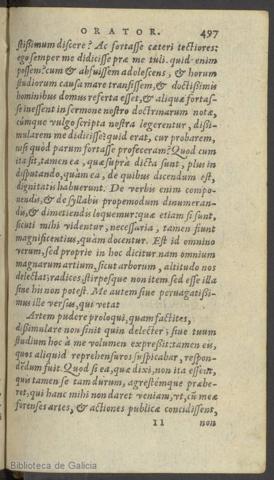 ORATOR. 497
ſtiſſimum diſcere? Ac fortaſſe cæteri tectiores:
ego ſemper me didiciſſe præ me tuli. quid enim
poſſem? cum & abfuiſſem adoleſcens, & horum
ſtudiorum cauſa mare tranſiſſem, & doctiſſimis
hominibus domus referta eſſet, & aliquæ fortaſ-
ſe ineſſent in ſermone noſtro doctrinarum notæ,
cúmque vulgo ſcripta noſtra legerentur, diſſi-
mularem me didiciſſe? quid erat, cur probarem,
niſi quòd parum fortaſſe profeceram? Quod cum
ita ſit, tamen ea, quæ ſuprà dicta ſunt, plus in
diſputando, quàm ea, de quibus dicendum eſt,
dignitatis habuerunt. De verbis enim compo-
nendis, & de ſyllabis propemodum dinumeran-
dis, & dimetiendis loquemur: quæ etiam ſi ſunt,
ſicuti mihi videntur, neceſſaria, tamen fiunt
magnificentius, quàm docentur. Eſt id omnino
verum, ſed proprie in hoc dicitur. nam omnium
magnarum artium, ſicut arborum, altitudo nos
delectat: radices, ſtirpeſque non item. ſed eſſe illa
ſine his non poteſt. Me autem ſiue peruagatiſſi-
mus ille verſus, qui vetat
Artem pudere proloqui, quam factites,
diſſimulare non ſinit quin delecter; ſiue tuum
ſtudium hoc à me volumen expreſſit: tamen eis,
quos aliquid reprehenſuros ſuſpicabar, reſpon-
dẽdum fuit. Quod ſi ea, quæ dixi, non ita eſſent,
quis tamen ſe tam durum, agreſtémque præbe-
ret, qui hanc mihi non daret veniam, vt, cũ meæ
forenſes artes, & actiones publicæ concidiſſent,
II non
Biblioteca de Galicia